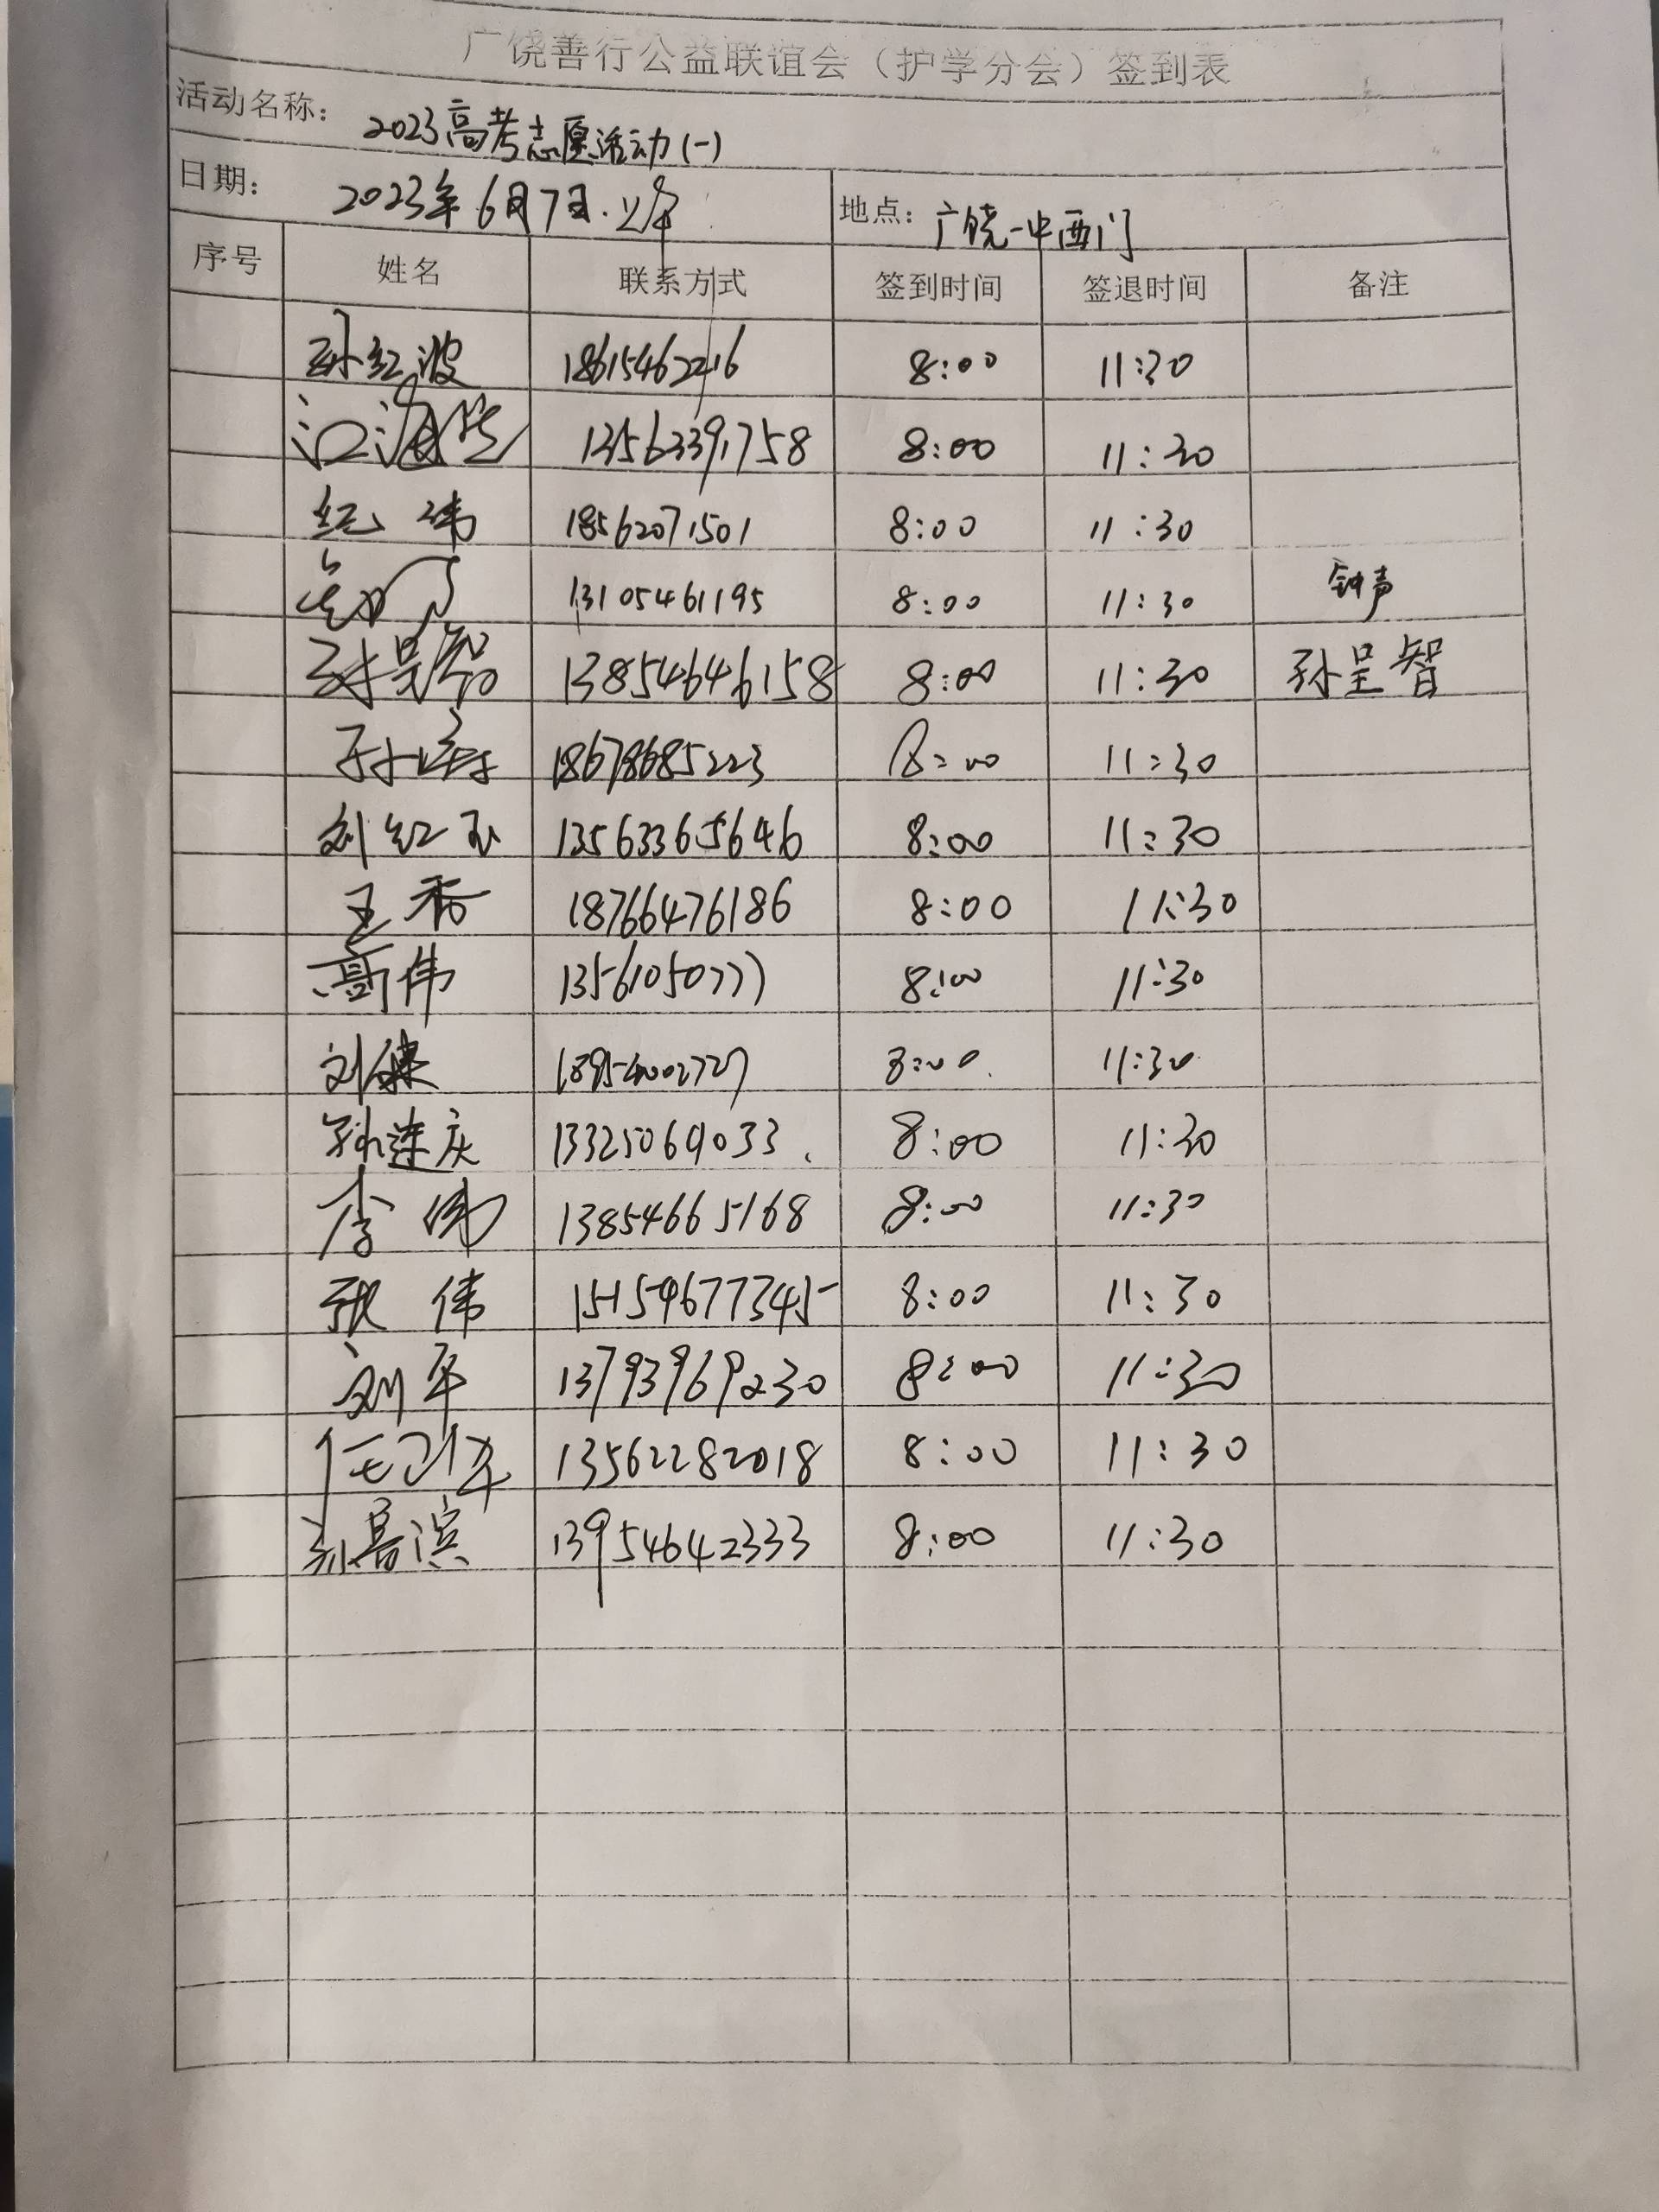 广饶善行公益联谊会（护学分会）签到表
活动名称： 2023高考志愿活动(一)
日期： 2023年6月7日.上午 地点： 广饶一中西门
序号 姓名 联系方式 签到时间 签退时间 备注
孙红波 18615462216 8:00 11:30
江海 13563391758 8:00 11:30
纪玮 18562071501 8:00 11:30
13105461195 8:00 11:30 钟声
孙呈智 13854646158 8:00 11:30 孙呈智
18678685223 8:00 11:30
刘红玉 13563365646 8:00 11:30
王秀 18766476186 8:00 11:30
伟 13561050777 8:00 11:30
刘健 18954002727 8:00 11:30
孙连庆 13325069033 8:00 11:30
李伟 13854665168 8:00 11:30
张伟 15154677345 8:00 11:30
刘平 13793969230 8:00 11:30
任 13562282018 8:00 11:30
滨 13954642333 8:00 11:30